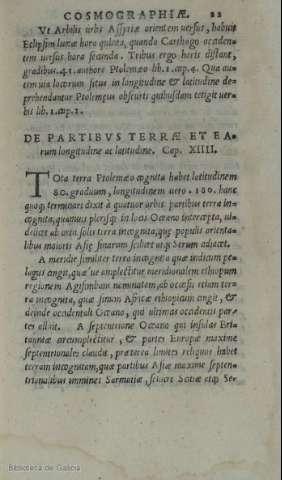 COSMOGRAPHIÆ. 22
Vt Arbilis vrbs Assyriæ orientem versus, habuit
Eclypsim lunæ hora quinta, quando Carthago occiden-
tem versus hora secunda. Tribus ergo horis distant,
gradibus .41. authore Ptolemæo lib. 1. cap. 4. Qua au-
tem via locorum situs in longitudine & latitudine de-
prehendantur Ptolemæus obscuris quibusdam tetigit ver-
bis lib. 1. cap. 2.
DE PARTIBVS TERRÆ ET EA-
rum longitudine ac latitudine. Cap. XIIII.
TOta terra Ptolemæo cognita habet latitudinem
80. graduum, longitudinem vero .180. hanc
quoq; terminari dixit à quatuor orbis partibus terra in-
cognita, quamuis plerisq; in locis Oceano intercepta, vi-
delicet ab ortu solis terra incognita, que populis orienta-
libus maioris Asiæ Sinarum scilicet atq; Serum adiacet.
A meridie similiter terra incognita quæ indicum pe-
lagus cingit, quæ ve amplectitur meridionalem ethiopum
regionem Agisymbam nominatam, ab occasu etiam ter-
ra incognita, quæ sinum Africæ ethiopicum cingit, &
deinde occidentali Oceano, qui vltimas occidentis par-
tes alluit. A septentrione Oceano qui insulas Bri-
tannicæ circumplectitur, & partes Europæ maxime
septentrionales claudit, præterea limites reliquos habet
terram incognitam, quæ partibus Asiæ maxime septen-
trionalibus imminet Sarmatiæ, scilicet Scitiæ atq; Ser
Biblioteca de Galicia